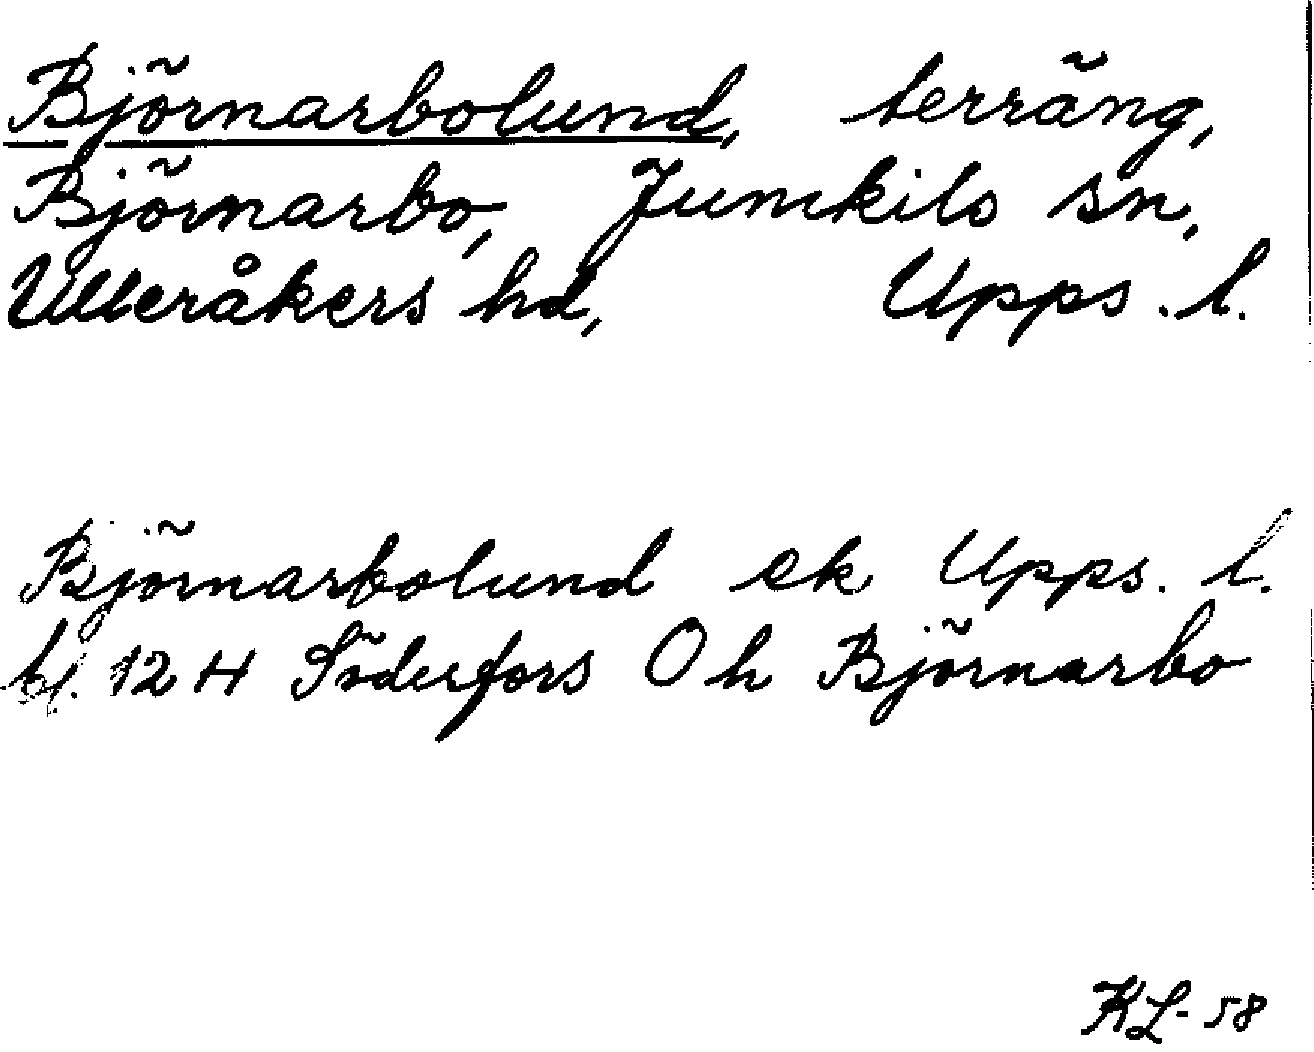 Björnarbolund, terräng,
Björnarbo, Jumkils sn,
Ulleråkers hd, Upps. l.
Björnarbolund ek Upps. l.
bl. 12 H Söderfors O h Björnarbo
KL-58